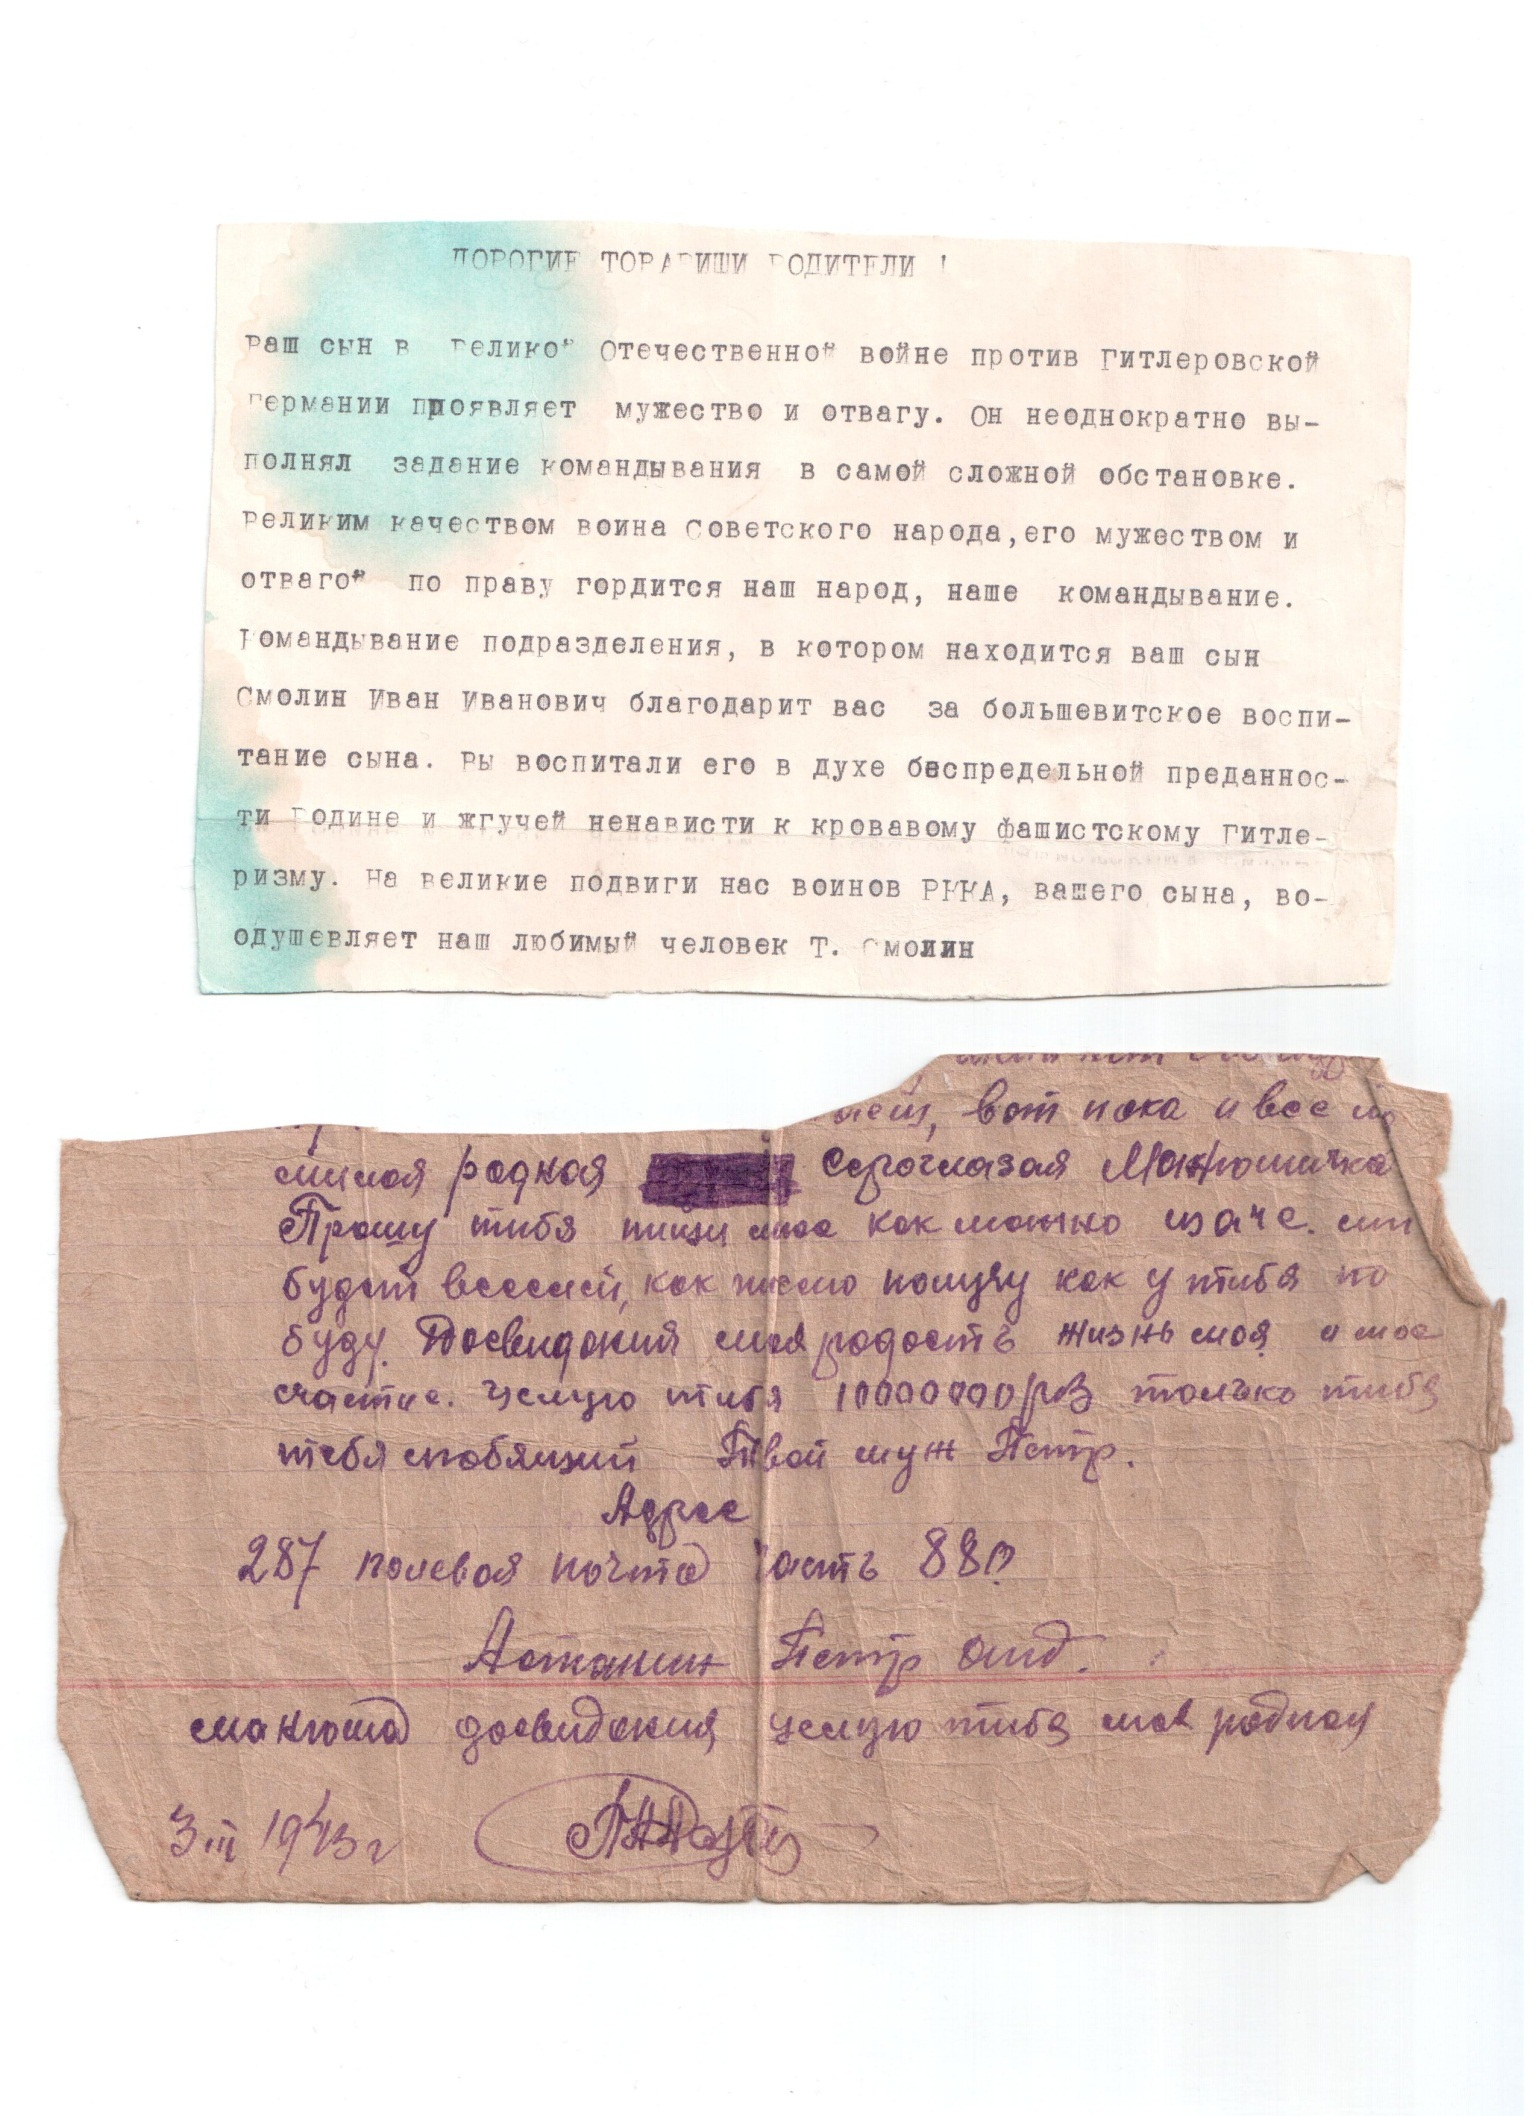 ДОРОГИЕ ТОВАРИШИ РОДИТЕЛИ !
Ваш сын в Великой Отечественной войне против Гитлеровской
Германии проявляет мужество и отвагу. Он неоднократно вы-
полнял задание командывания в самой сложной обстановке.
Великим качеством воина Советского народа,его мужеством и
отвагой по праву гордится наш народ, наше командывание.
Командывание подразделения, в котором находится ваш сын
Смолин Иван Иванович благодарит вас за большевитское воспи-
тание сына. Вы воспитали его в духе беспредельной преданнос-
ти Родине и жгучей ненависти к кровавому фашистскому Гитле-
ризму. На великие подвиги нас воинов РККА, вашего сына, во-
одушевляет наш любимый человек Т. Смолин
вот пока и все
милая родная Сероглазая Манюшичка
Прошу тибя пиши мне как можно чаче.
будет веселей, как писмо получу как у тибя по
буду. Досвидания моя радость жизнь моя и мое
счастие. Целую тибя 10000000 рз только тибя
тебя любящий Твой муж Петр.
Адрес
287 полевая почта часть 880
Астанин Петр
манюша досвидания целую тибя моя родная
3.III 1943 г